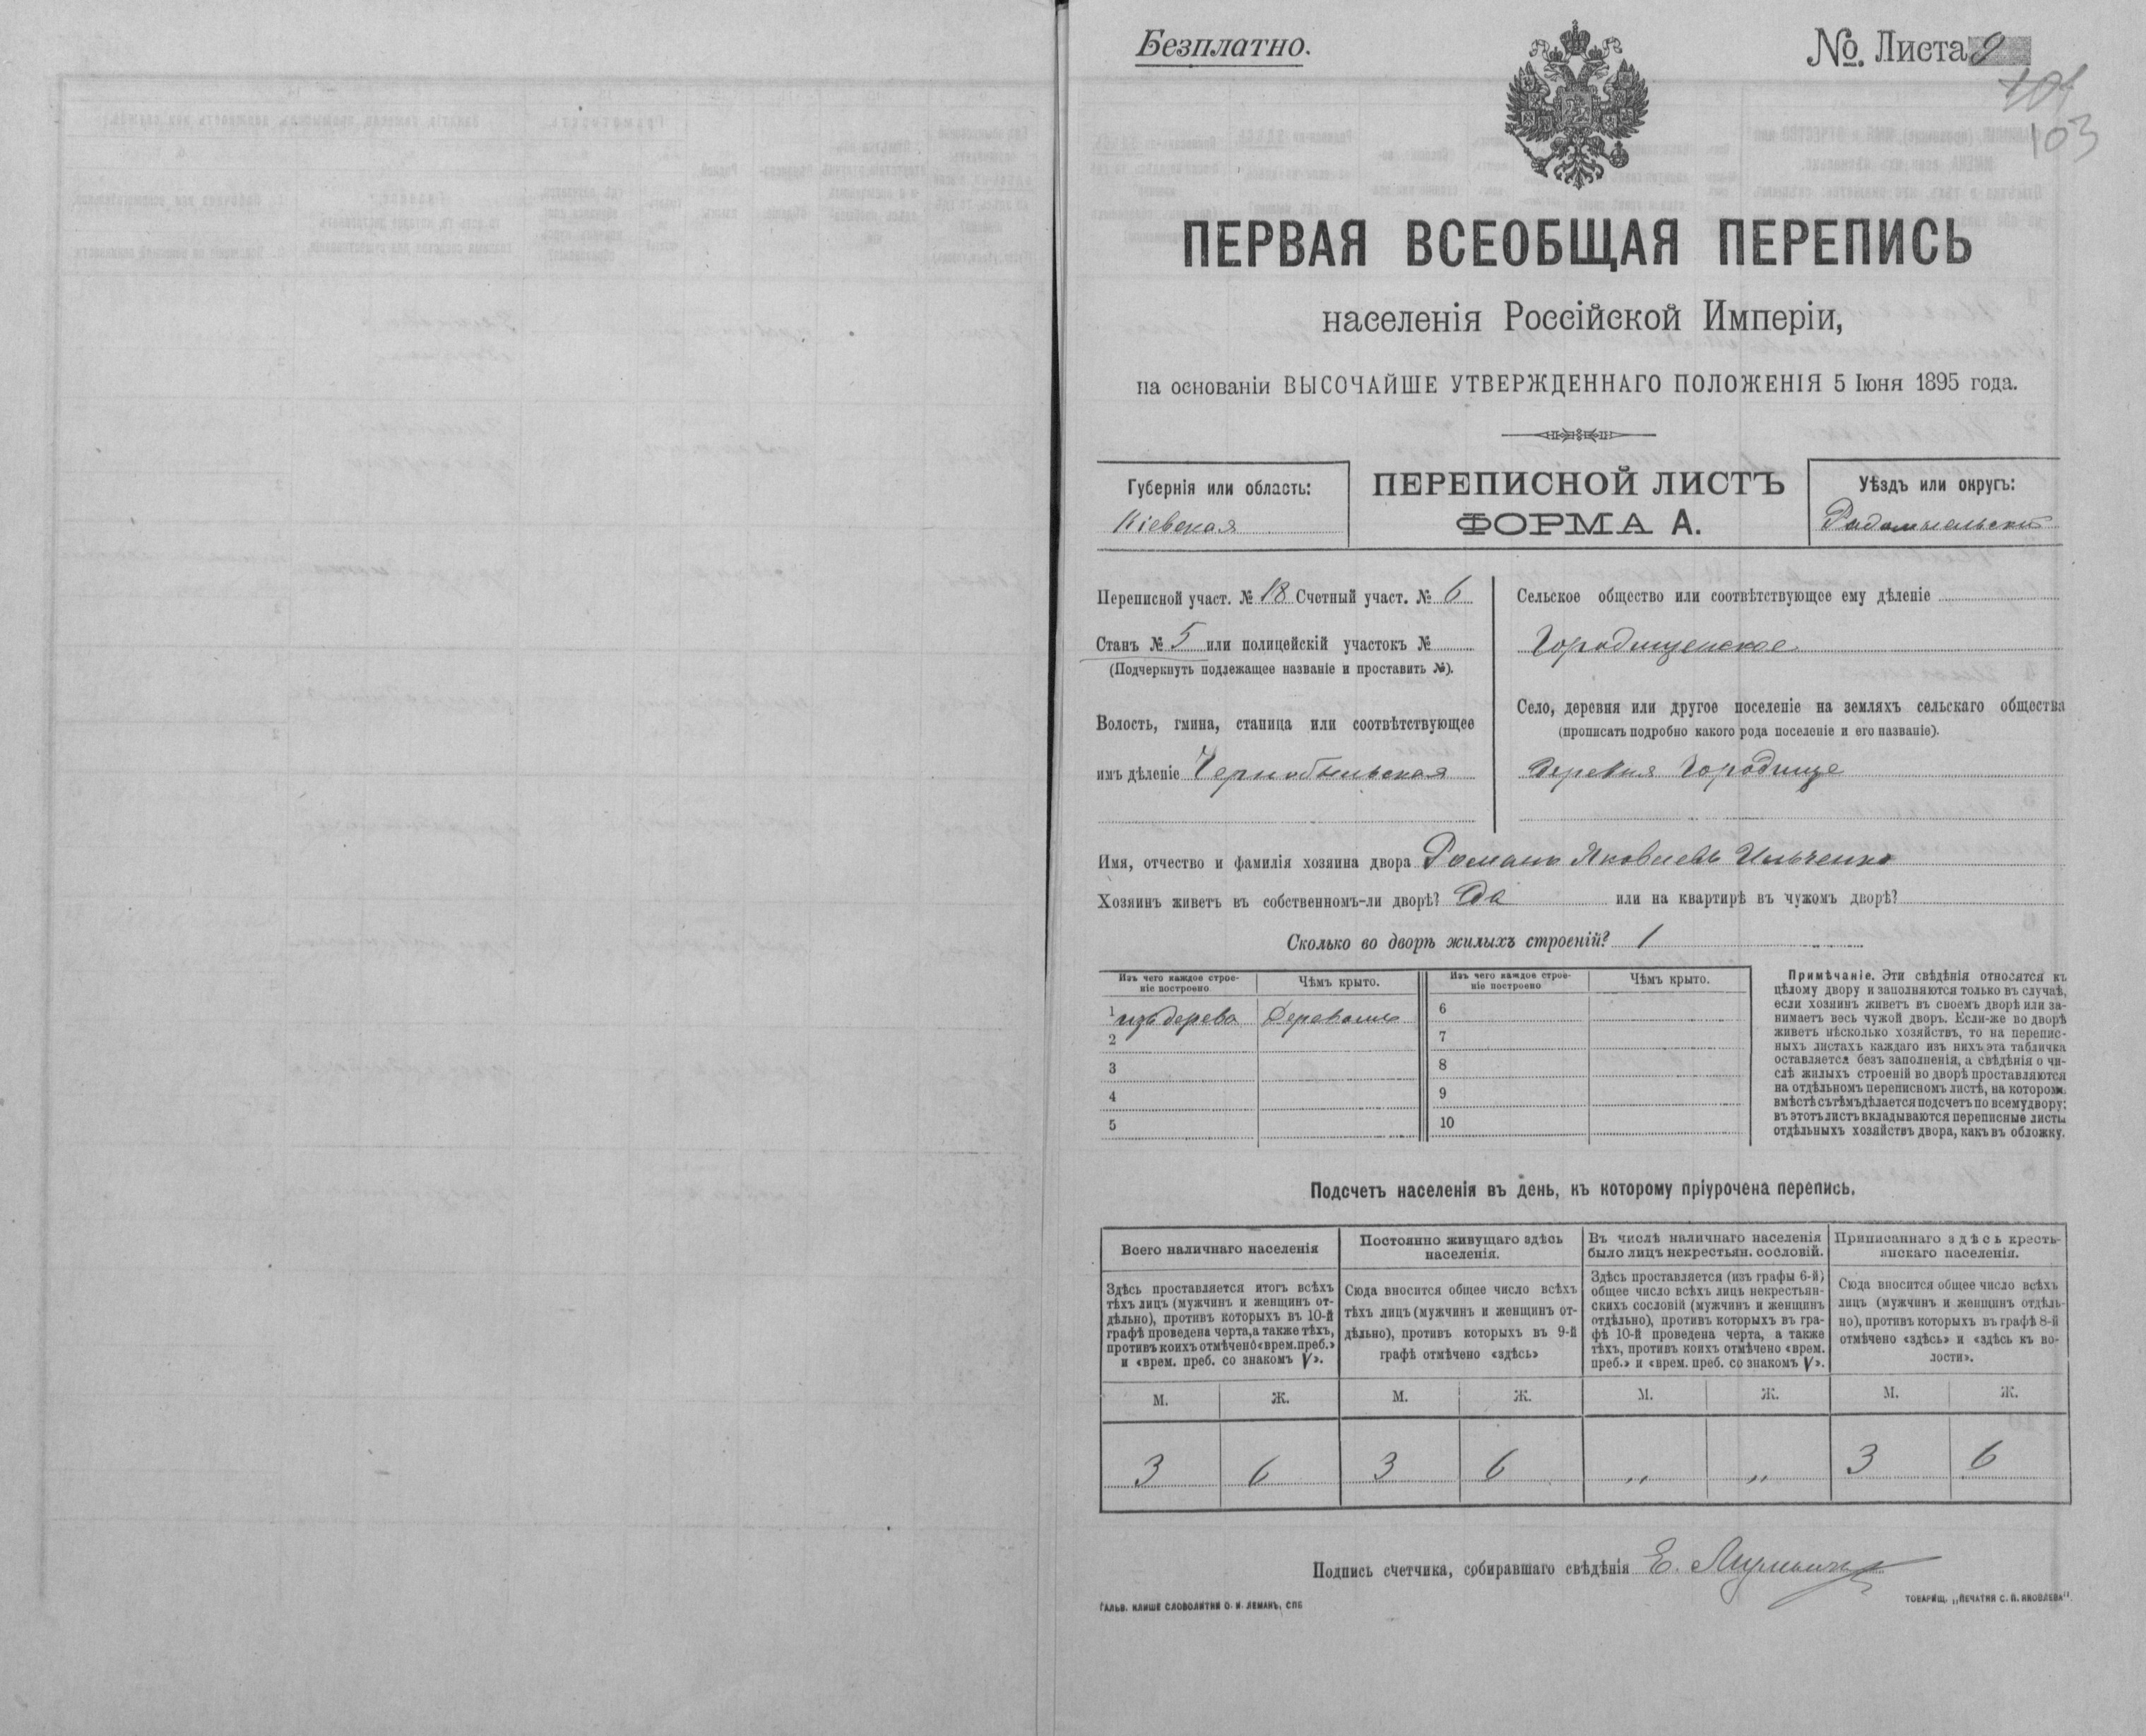 Безплатно.
№. Листа 9
101
103
ПЕРВАЯ ВСЕОБЩАЯ ПЕРЕПИСЬ
населенія Россійской Имперіи,
на основаніи ВЫСОЧАЙШЕ УТВЕРЖДЕННАГО ПОЛОЖЕНІЯ 5 Іюня 1895 года.
Губернія или область:
Кіевская
ПЕРЕПИСНОЙ ЛИСТЪ
ФОРМА А.
Уѣздъ или округъ:
Радомысльскій
Переписной участ. № 18 Счетный участ. № 6
Станъ № 5 или полицейскій участокъ №
(Подчеркнуть подлежащее названіе и проставить №).
Волость, гмина, станица или соотвѣтствующее
имъ дѣленіе Чернобыльская
Сельское общество или соотвѣтствующее ему дѣленіе
Городищенское
Село, деревня или другое поселеніе на земляхъ сельскаго общества
(прописать подробно какого рода поселеніе и его названіе).
Деревня Городище
Имя, отчество и фамилія хозяина двора Романъ Яковлевъ Ильченко
Хозяинъ живетъ въ собственномъ-ли дворѣ? Да или на квартирѣ въ чужомъ дворѣ?
Сколько во дворѣ жилыхъ строеній? 1
Изъ чего каждое строе-
ніе построено
Чѣмъ крыто.
1 изъ дерева Деревомъ
2
3
4
5
Изъ чего каждое строе-
ніе построено
Чѣмъ крыто.
6
7
8
9
10
Примѣчаніе. Эти свѣдѣнія относятся къ
цѣлому двору и заполняются только въ случаѣ,
если хозяинъ живетъ въ своемъ дворѣ или за-
нимаетъ весь чужой дворъ. Если-же во дворѣ
живетъ нѣсколько хозяйствъ, то на перепис-
ныхъ листахъ каждаго изъ нихъ эта табличка
оставляется безъ заполненія, а свѣдѣнія о чи-
слѣ жилыхъ строеній во дворѣ проставляются
на отдѣльномъ переписномъ листѣ, на которомъ
вмѣстѣ съ тѣмъ дѣлается подсчетъ по всему двору;
въ этотъ листъ вкладываются переписные листы
отдѣльныхъ хозяйствъ двора, какъ въ обложку.
Подсчетъ населенія въ день, къ которому пріурочена перепись.
Всего наличнаго населенія
Здѣсь проставляется итогъ всѣхъ
тѣхъ лицъ (мужчинъ и женщинъ от-
дѣльно), противъ которыхъ въ 10-й
графѣ проведена черта, а также тѣхъ,
противъ коихъ отмѣчено «врем. преб.»
и «врем. преб. со знакомъ V».
Постоянно живущаго здѣсь
населенія.
Сюда вносится общее число всѣхъ
тѣхъ лицъ (мужчинъ и женщинъ от-
дѣльно), противъ которыхъ въ 9-й
графѣ отмѣчено «здѣсь»
Въ числѣ наличнаго населенія
было лицъ некрестьян. сословій.
Здѣсь проставляется (изъ графы 6-й)
общее число всѣхъ лицъ некрестьян-
скихъ сословій (мужчинъ и женщинъ
отдѣльно), противъ которыхъ въ гра-
фѣ 10-й проведена черта, а также
тѣхъ, противъ коихъ отмѣчено «врем.
преб.» и «врем. преб. со знакомъ V».
Приписаннаго здѣсь кресть-
янскаго населенія.
Сюда вносится общее число всѣхъ
лицъ (мужчинъ и женщинъ отдѣль-
но), противъ которыхъ въ графѣ 8-й
отмѣчено «здѣсь» и «здѣсь къ во-
лости».
М. Ж. М. Ж. М. Ж. М. Ж.
3 6 3 6 „ „ 3 6
Подпись счетчика, собиравшаго свѣдѣнія Е.
ГАЛЬВ. КЛИШЕ СЛОВОЛИТНИ О. И. ЛЕМАНЪ, СПБ
ТОВАРИЩ. „ПЕЧАТНЯ С. П. ЯКОВЛЕВА“